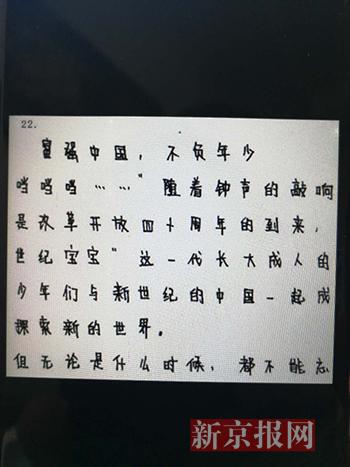 22.
富强中国，不负年少
当当当……“随着钟声的敲响
是改革开放四十周年的到来，
世纪宝宝”这一代长大成人的
少年们与新世纪的中国一起成
探索新的世界。
但无论是什么时候，都不能忘
新京报网